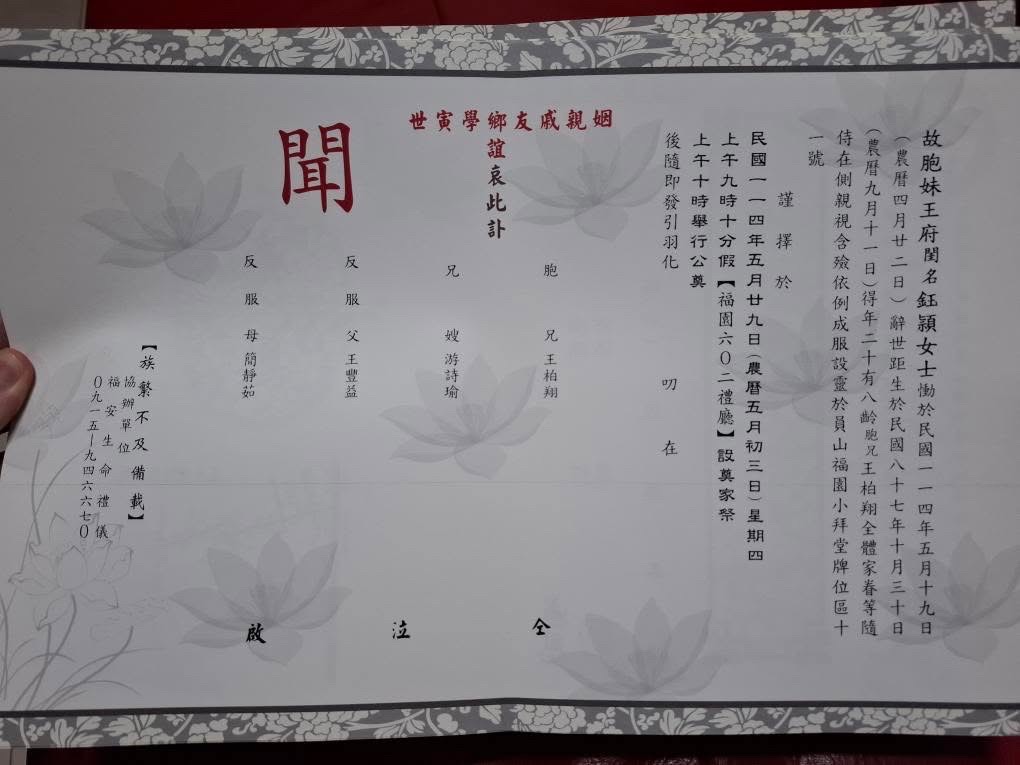 故胞妹王府閨名鈺潁女士慟於民國一一四年五月十九日
（農曆四月廿二日）辭世距生於民國八十七年十月三十日
（農曆九月十一日）得年二十有八齡胞兄王柏翔全體家眷等隨
侍在側親視含殮依例成服設靈於員山福園小拜堂牌位區十
一號
謹擇於
民國一一四年五月廿九日（農曆五月初三日）星期四
上午九時十分假【福園六〇二禮廳】設奠家祭
上午十時舉行公奠
後隨即發引羽化
叨在
姻親戚友鄉學寅世
誼哀此訃
聞
胞兄王柏翔
兄嫂游詩瑜
反服父王豐益
反服母簡靜茹
仝
泣
啟
【族繁不及備載】
協辦單位
福安生命禮儀
〇九一五－九四六六七〇